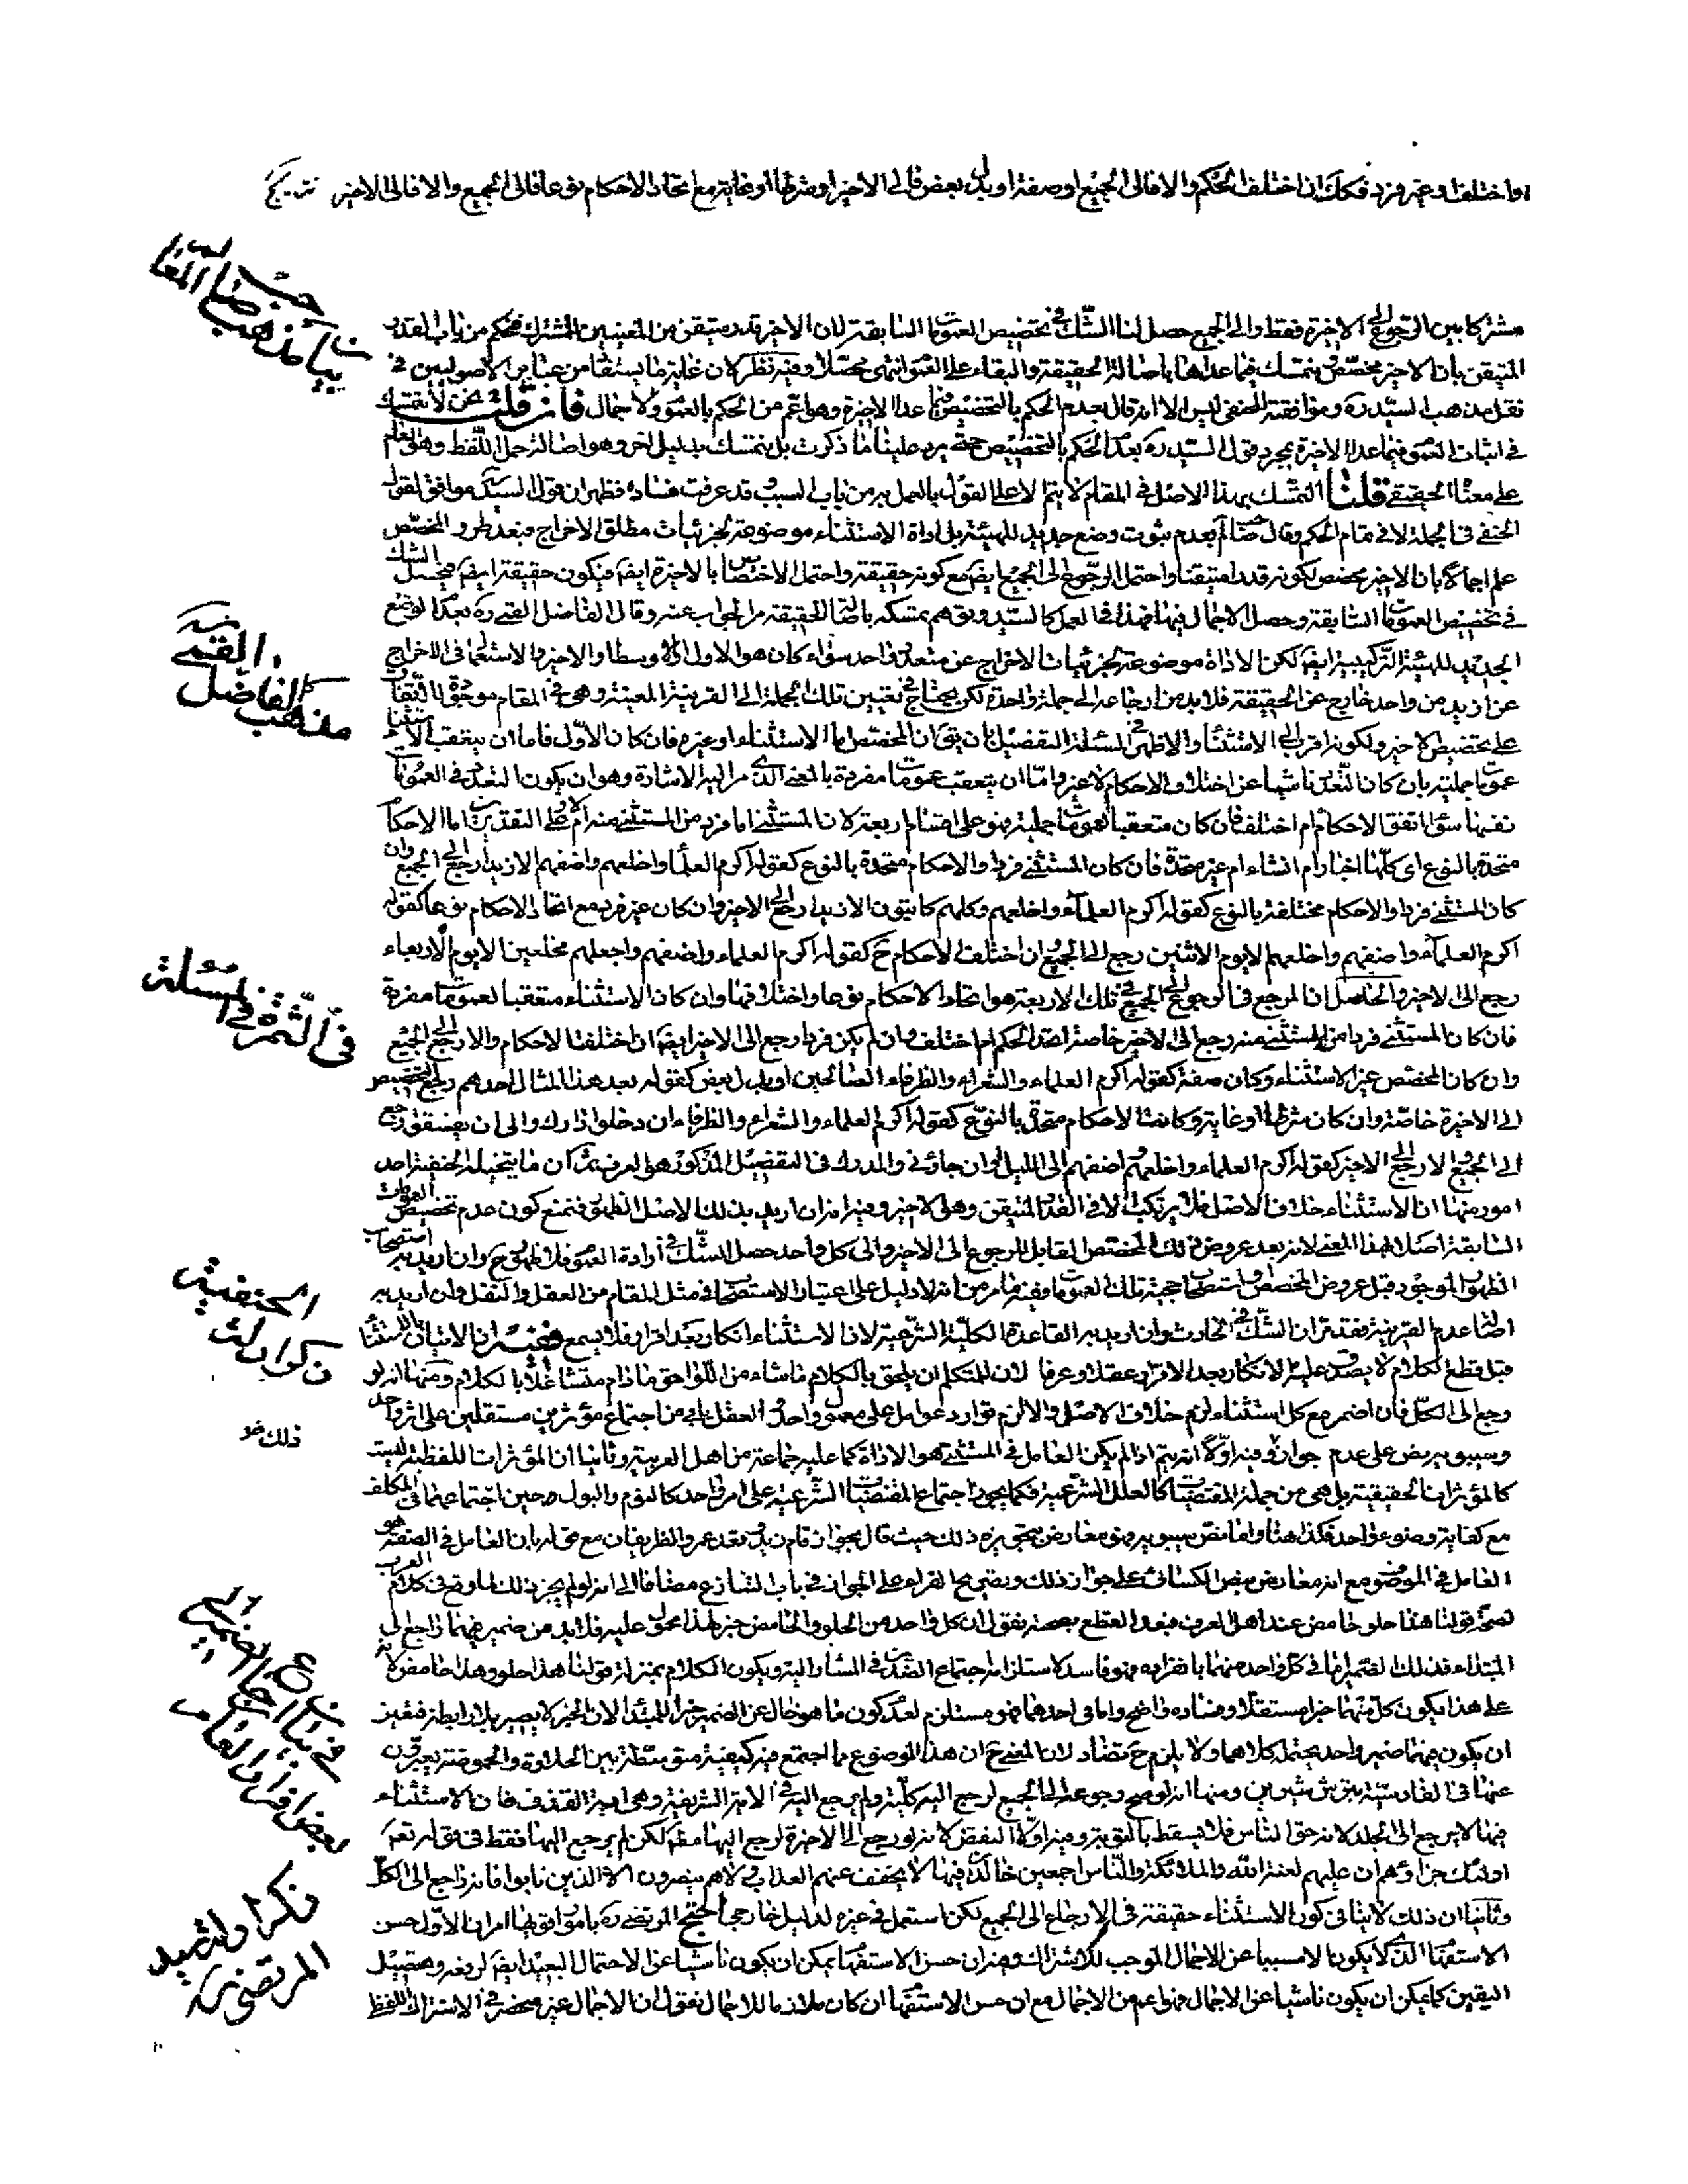 واختلفا وغير فرد فكك ان اختلف الحكم والا فالى الجميع او صفة او بدل بعض فالى الاخير او شرطا او غاية مع اتحاد الاحكام نوعا فالى الجميع والا فالى الاخير
مشتركا بين الرجوع الى الاخيرة فقط والى الجميع حصل لنا الشك فى تخصيص العمومات السابقة لان الاخير قدر متيقن من المعنيين المشترك فيحكم من باب القدر
المتيقن بان الاخير مخصص ويتمسك فيما عداها باصالة الحقيقة والبقاء على العموم انتهى محصلا وفيه نظر لان غاية ما يستفا من عباير الاصوليين فى
نقل مذهب السيد ره وموافقته للحنفى ليس الا انه قال بعدم الحكم بالتخصيص فيما عدا الاخيرة وهو اعم من الحكم بالعموم والاجمال فان قلت نحن لا نتمسك
فى اثبات العموم فيما عدا الاخيرة بمجرد قول السيد ره بعدم الحكم بالتخصيص حتى يرد علينا ما ذكرت بل نتمسك بدليل اخر وهو اصالة حمل اللفظ وهو العام
على معناه الحقيقى قلنا التمسك بهذا الاصل فى المقام لا يتم الا على القول بالعمل به من باب السبب وقد عرفت فساده فظهر ان قول السيد موافق لقول
الحنفى فى الجملة لا فى تمام الحكم وقال صا لم بعدم ثبوت وضع جديد للهيئة بل اداة الاستثناء موضوعة لجزئيات مطلق الاخراج فبعد طرو المخصص
علم اجمالا بان الاخير مخصص لكونه قدرا متيقنا واحتمل الرجوع الى الجميع ايضا مع كونه حقيقة واحتمل الاختصاص بالاخيرة ايضا فيكون حقيقة ايضا فيحصل الشك
فى تخصيص العمومات السابقة وحصل الاجمال فيها فهذا فى العمل كالسيد وبوهم تمسكه باصالة الحقيقة مر الجواب عنه وقال الفاضل القمى ره بعدم الوضع
الجديد للهيئة التركيبية ايضا لكن الاداة موضوعة لجزئيات الاخراج عن متعدد واحد سواء كان هو الاول او الاوسط او الاخير والاستعمال فى الاخراج
عن ازيد من واحد خارج عن الحقيقة فلا بد من ارجاعه الى جملة واحدة لكن يحتاج فى تعيين تلك الجملة الى القرينة المعينة وهى فى المقام موجودة لاتفاقهم
على تخصيص الاخير ولكونه اقرب الى الاستثناء والاظهر فى المسئلة التفصيل بان يقال ان المخصص اما الاستثناء او غيره فان كان الاول فاما ان يتعقب الاستثناء
عمومات جملية بان كان التعدد ناشيا عن اختلاف الاحكام لا غير واما ان يتعقب عمومات مفردة بالمعنى الذى مر اليه الاشارة وهو ان يكون التعدد فى العمومات
نفسها سواء اتفق الاحكام ام اختلفت فان كان متعقبا لعمومات جملية فهو على اقسام اربعة لان المستثنى اما فرد من المستثنى منه ام لا وعلى التقديرين اما الاحكام
متحدة بالنوع اى كلها اخبار ام انشاء ام غير متحدة فان كان المستثنى فردا والاحكام متحدة بالنوع كقوله اكرم العلماء واخلعهم واضفهم الا زيدا رجع الى الجميع وان
كان المستثنى فردا والاحكام مختلفة بالنوع كقوله اكرم العلماء واخلعهم وكلهم كاتبون الا زيدا رجع الى الاخير وان كان غير فرد مع اتحاد الاحكام نوعا كقوله
اكرم العلماء واضفهم واخلعهم الا يوم الاثنين رجع الى الجميع وان اختلف الاحكام ح كقوله اكرم العلماء واضفهم واجعلهم مخلعين الا يوم الاربعاء
رجع الى الاخير والحاصل ان المرجع فى الرجوع الى الجميع فى تلك الاربعة هو اتحاد الاحكام نوعا واختلافها وان كان الاستثناء متعقبا لعمومات مفردة
فان كان المستثنى فردا من المستثنى منه رجع الى الاخير خاصة اتحد الحكم ام اختلف وان لم يكن فردا رجع الى الاخير ايضا ان اختلفت الاحكام والا رجع الى الجميع
وان كان المخصص غير الاستثناء وكان صفة كقوله اكرم العلماء والشعراء والظرفاء الصالحين او بدل بعض كقوله بعد هذا المثال احدهم رجع التخصيص
الى الاخيرة خاصة وان كان شرطا او غاية وكانت الاحكام متحدة بالنوع كقوله اكرم العلماء والشعراء والظرفاء ان دخلوا دارك والى ان يفسقوا رجع
الى الجميع والا رجع الى الاخير كقوله اكرم العلماء واخلعهم اضفهم الى الليل او ان جاؤنى والمدرك فى التفصيل المذكور هو العرف ثم ان ما يتخيله الحنفية احد
امور منها ان الاستثناء خلاف الاصل فلا يرتكب الا فى القدر المتيقن وهى الاخير وفيه انه ان اريد بذلك الاصل الظهور فنمنع كون عدم تخصيص العمومات
السابقة اصلا بهذا المعنى لانه بعد عروض ذلك المخصص القابل للرجوع الى الاخير والى كل واحد حصل الشك فى ارادة العموم فلا ظهور ح وان اريد به استصحاب
الظهور الموجود قبل عروض المخصص او استصحاب حجية تلك العمومات وفيه ما مر من انه لا دليل على اعتبار الاستصحاب فى مثل المقام من العقل والنقل وان اريد به
اصالة عدم القرينة فقد مر ان الشك فى الحادث وان اريد به القاعدة الكلية الشرعية لان الاستثناء انكار بعد اقرار فلا يسمع ففيه ان الاتيان بالاستثناء
قبل قطع الكلام لا يصدق عليه الانكار بعد الاقرار عقلا وعرفا لان للمتكلم ان يلحق بالكلام ما شاء من اللواحق ما دام متشاغلا بالكلام ومنها انه لو
رجع الى الكل فان اضمر مع كل استثناء لزم خلاف الاصل والا لزم توارد عوامل على معمول واحد والعقل يابى من اجتماع مؤثرين مستقلين على اثر واحد
وسيبويه نص على عدم جوازه وفيه اولا انه يتم اذا لم يكن العامل فى المستثنى هو الاداة كما عليه جماعة من اهل العربية وثانيا ان المؤثرات اللفظية ليست
كالمؤثرات الحقيقية بل هى من جملة المقتضيات كالعلل الشرعية فكما يجوز اجتماع المقتضيات الشرعية على امر واحد كالنوم والبول حين اجتماعهما فى المكلف
مع كفاية وضوء واحد فكذا هنا واما نص سيبويه فهو معارض بتجويزه ذلك حيث قال بجواز قام زيد وقعد عمرو الظريفان مع قوله بان العامل فى الصفة هو
العامل فى الموصوف مع انه معارض بنص الكسائى على جواز ذلك وبتصريح الفراء على الجواز فى باب التنازع مضافا الى انه لو لم يجز ذلك لما وقع فى كلام العرب
لصحة قولنا هذا حلو حامض عند اهل العرف فبعد القطع بصحته نقول ان كل واحد من الحلو والحامض خبر لهذا محمول عليه فلا بد من ضمير فيهما راجع الى
المبتداء فذلك الضمير اما فى كل واحد منهما بانفراده فهو فاسد لاستلزامه اجتماع الضدين فى المشار اليه ويكون الكلام بمنزلة قولنا هذا حلو وهذا حامض لانه
على هذا يكون كل منهما خبرا مستقلا وفساده واضح واما فى احدهما فهو مستلزم لعدم كون ما هو خال عن الضمير خبرا للمبتدأ لان الخبر لا يصير بلا رابطة فتعين
ان يكون فيهما ضمير واحد يحتمله كلاهما ولا يلزم ح تضاد لان المعنى ح ان هذا الموضوع مما اجتمع فيه كيفية متوسطة بين الحلاوة والحموضة يعبرون
عنها فى الفارسية بترش شيرين ومنها انه لو صح رجوعه الى الجميع لرجع اليه كليّة ولم يرجع اليه فى الاية الشريفة وهى اية القذف فان الاستثناء
فيها لا يرجع الى الجلد لانه حق الناس فلا يسقط بالتوبة وفيه اولا النقض لانه لو رجع الى الاخيرة لرجع اليها مطلقا لكن لم يرجع اليها فقط فى قوله تعم
اولئك جزاؤهم ان عليهم لعنة الله والملائكة والناس اجمعين خالدين فيها لا يخفف عنهم العذاب ولا هم ينصرون الا الذين تابوا فانه راجع الى الكل
وثانيا ان ذلك لا ينافى كون الاستثناء حقيقة فى الارجاع الى الجميع لكن استعمل فى غيره لدليل خارجى احتج المرتضى ره بامور اقواها امران الاول حسن
الاستفهام الذى لا يكون الا مسببا عن الاجمال الموجب للاشتراك وفيه ان حسن الاستفهام يمكن ان يكون ناشيا عن الاحتمال البعيد ايضا لرفعه وتحصيل
اليقين كما يمكن ان يكون ناشيا عن الاجمال فهو اعم من الاجمال مع ان حسن الاستفهام ان كان ملازما للاجمال نقول ان الاجمال غير منحصر فى الاشتراك اللفظى
بيان مذهب صاحب المعالم
مذهب الفاضل القمى ره
فى الثمرة فى المسئلة
ذكر ادلة الحنفية
ذكر ادلة السيد المرتضى ره